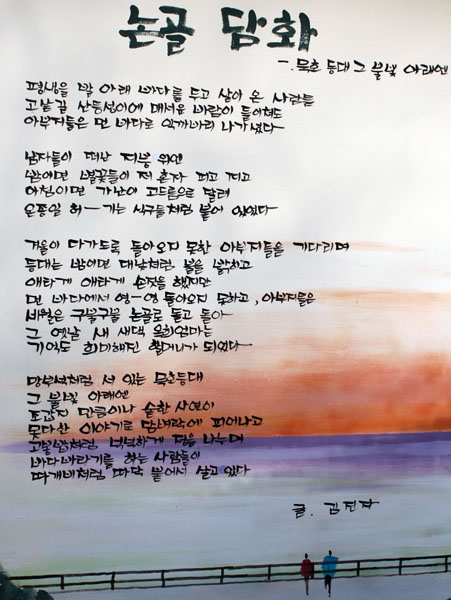 논골 담화
-. 묵호 등대 그 불빛 아래엔
평생을 발 아래 바다를 두고 살아 온 사람들
고갯길 산등성이에 매서운 바람이 들이쳐도
아부지들은 먼 바다로 나가셨다
남자들이 떠난 지붕 위엔
밤이면 별꽃들이 저 혼자 피고 지고
아침이면 가난이 고드름으로 달려
온종일 허ㅡ기는 식구들처럼 붙어 있었다
겨울이 다가도록 돌아오지 못한 아부지들을 기다리며
등대는 밤이면 대낮처럼 불을 밝히고
애타게 애타게 손짓을 했지만
먼 바다에서 영ㅡ영 돌아오지 못하고, 아부지들은
세월은 구불구불 논골로 돌고 돌아
그 옛날 새 새댁 엄마는
기억도 희미해진 할머니가 되었다
망부석처럼 서 있는 묵호등대
그 불빛 아래엔
조갑지 만큼이나 숱한 사연이
못다한 이야기로 담벼락에 피어나고
고봉밥처럼 넉넉하게 정을 나누며
바다바라기를 하는 사람들이
따개비처럼 따닥 붙어서 살고 있다
글. 김진자